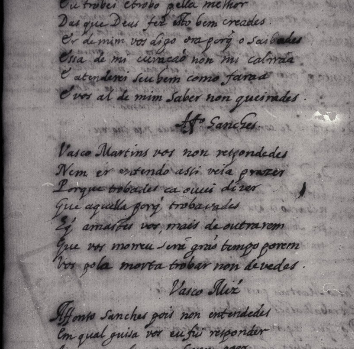 Eu trobei e trobo pella melhor
Das que Deus fez esto ben creades
E de mim vos digo ora porq o sabades
Essa de mi curaçao non mi calrria
E atenderei seu bem como faraa
E vos al de mim saber non queirades.
Affo Sanches.
Vasco Martins vos non respondedes
Nem er entendo assi veia prazer
Porque trobades ca ouui dizer
Que aquella porq trobauedes
Eq amastes vos, mais de outra rem
Que vos morreu será grão tempo porem
Vos pola morta trobar non devedes.
Vasco
Affonso Sanches pois non entendedes
Em qual guisa vos eu fui responder